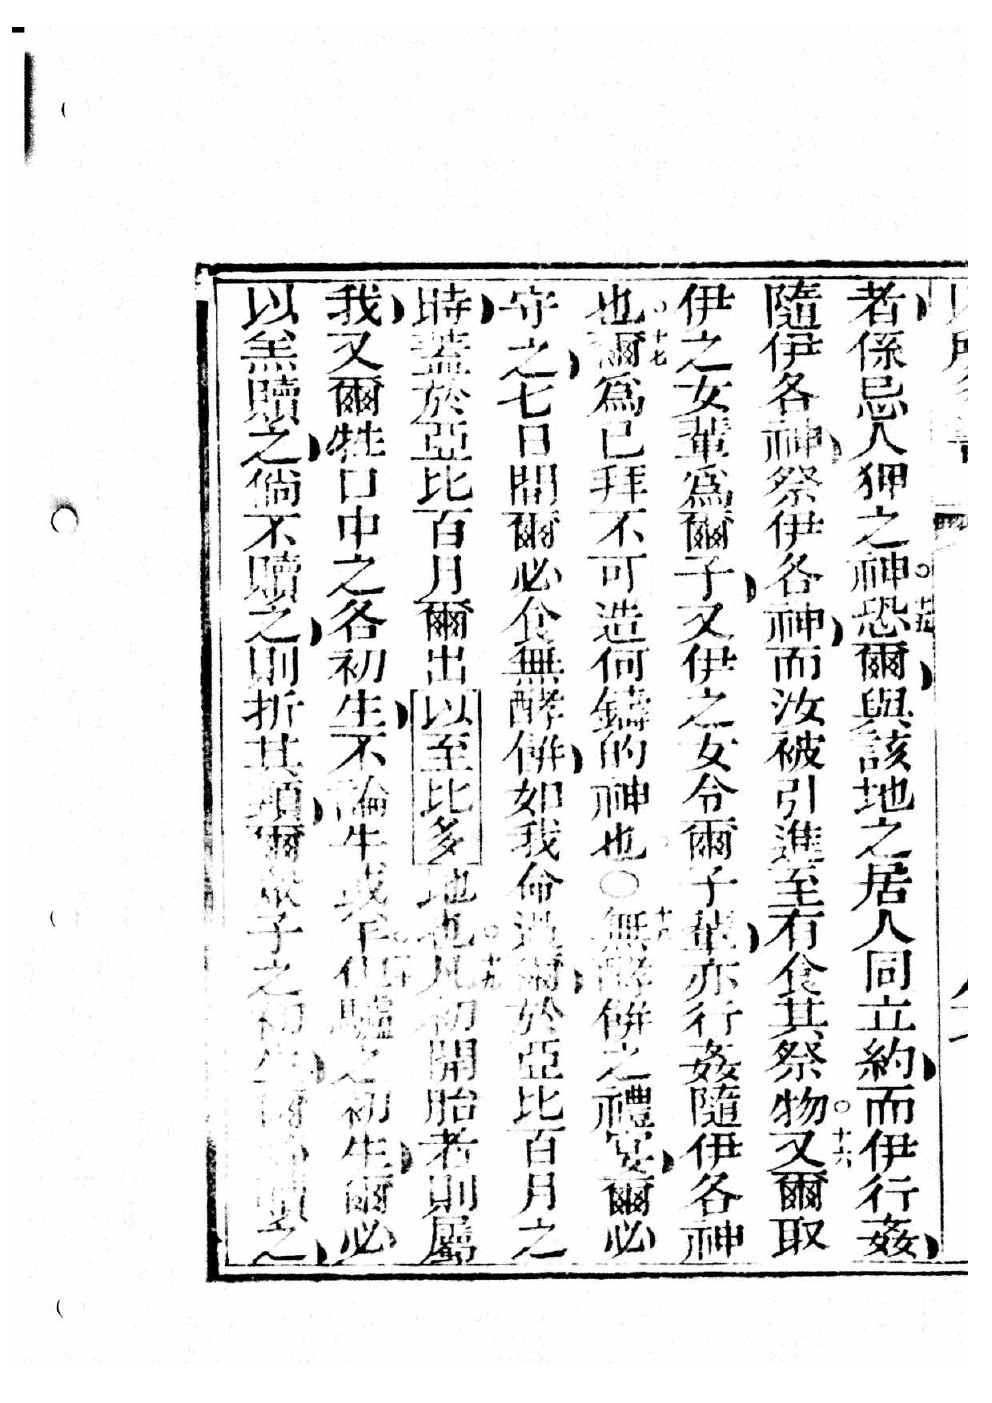 者係忌人狎之神○十五恐爾與該地之居人同立約而伊行姦
隨伊各神祭伊各神而汝被引進至有食其祭物○十六又爾取
伊之女輩爲爾子又伊之女令爾子輩亦行姦隨伊各神
也○十七爾爲己拜不可造何鑄的神也○十八無酵餅之禮宴爾必
守之七日間爾必食無酵餅如我命過爾於亞比百月之
時蓋於亞比百月爾出以至比多地也○十九凡初開胎者則屬
我又爾牲口中之各初生不論牛或羊○二十但驢之初生爾必
以羔贖之倘不贖之則折其頸爾衆子之初生爾必贖之